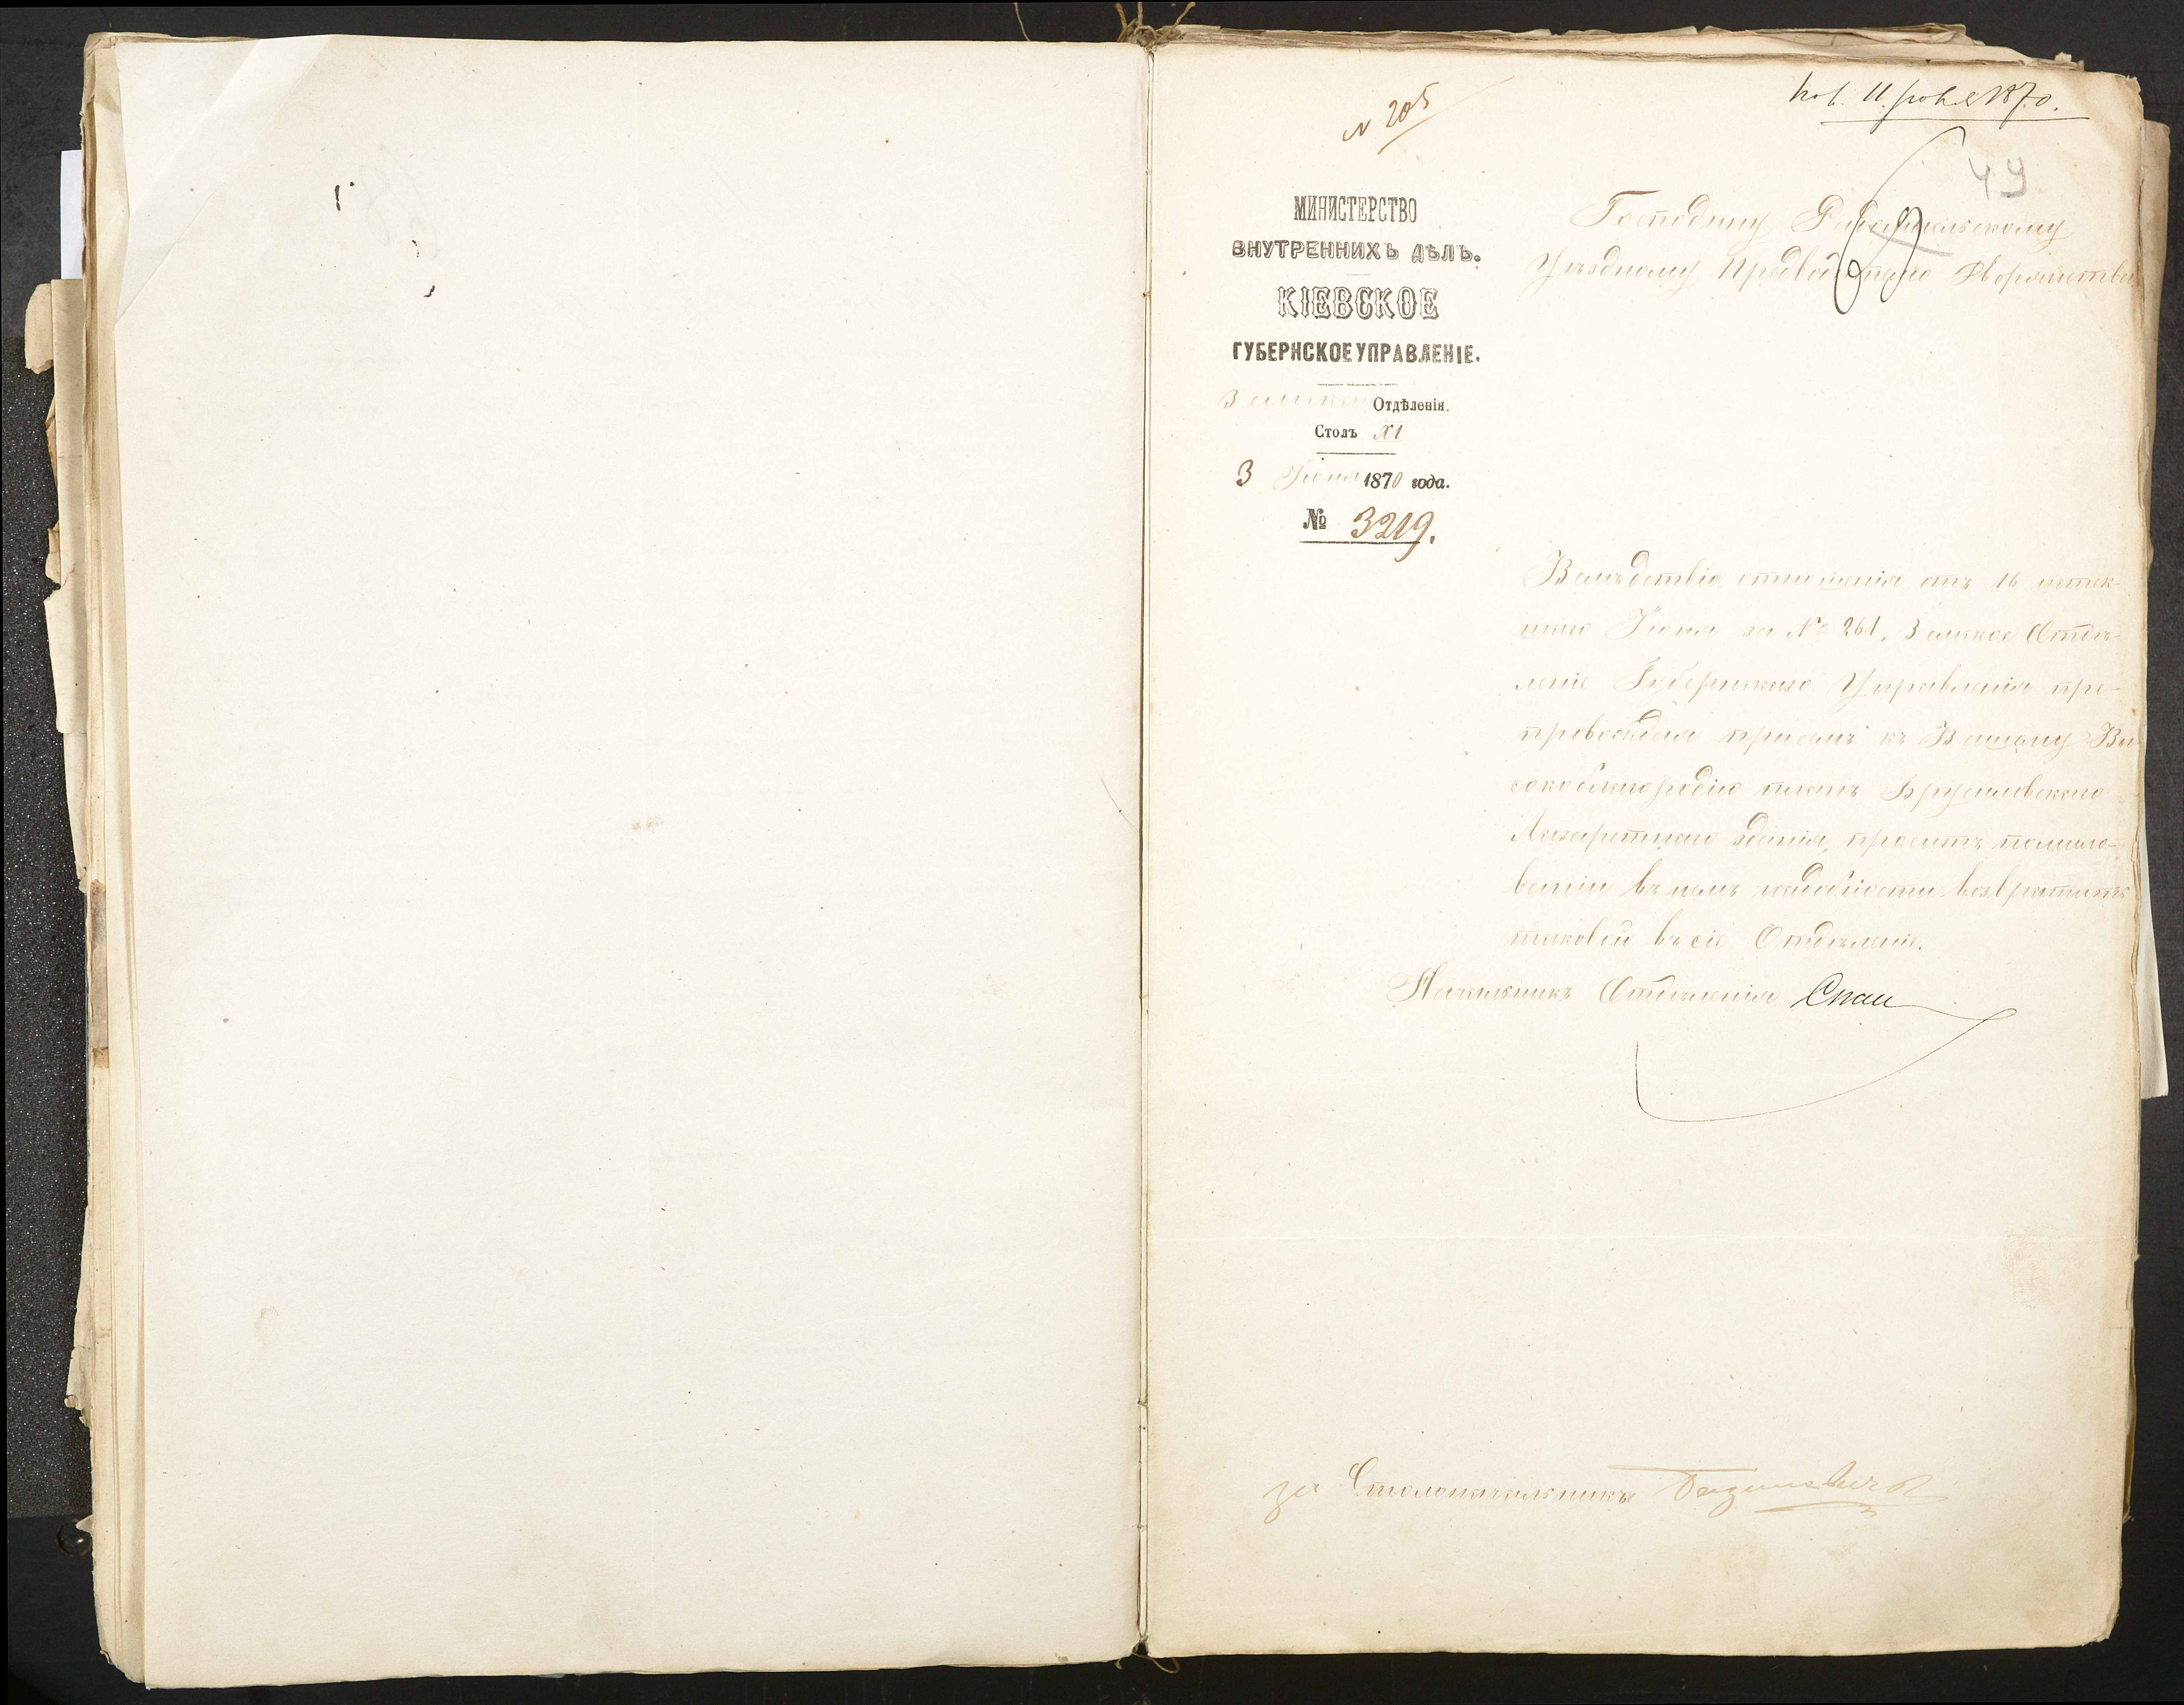 № 205
1870.
49
МИНИСТЕРСТВО
ВНУТРЕННИХЪ ДѢЛЪ.
КІЕВСКОЕ
ГУБЕРНСКОЕ УПРАВЛЕНІЕ.
Отдѣленія.
Столъ XI
3 1870 года.
№ 3219.
Господину Радомысльскому
Уѣздному Предводителю Дворянства
Вслѣдствіе отношенія отъ 16 истек-
шаго за № 261, Отдѣ-
леніе Губернскаго Управленія пре-
провождая при семъ къ Вашему Вы
сокоблагородію планъ Брусиловскаго
Лазаретнаго зданія, проситъ по мино-
ваніи въ немъ надобности возвратить
таковой въ сіе Отдѣленіе.
Начальникъ Отдѣленія
за Столоначальника